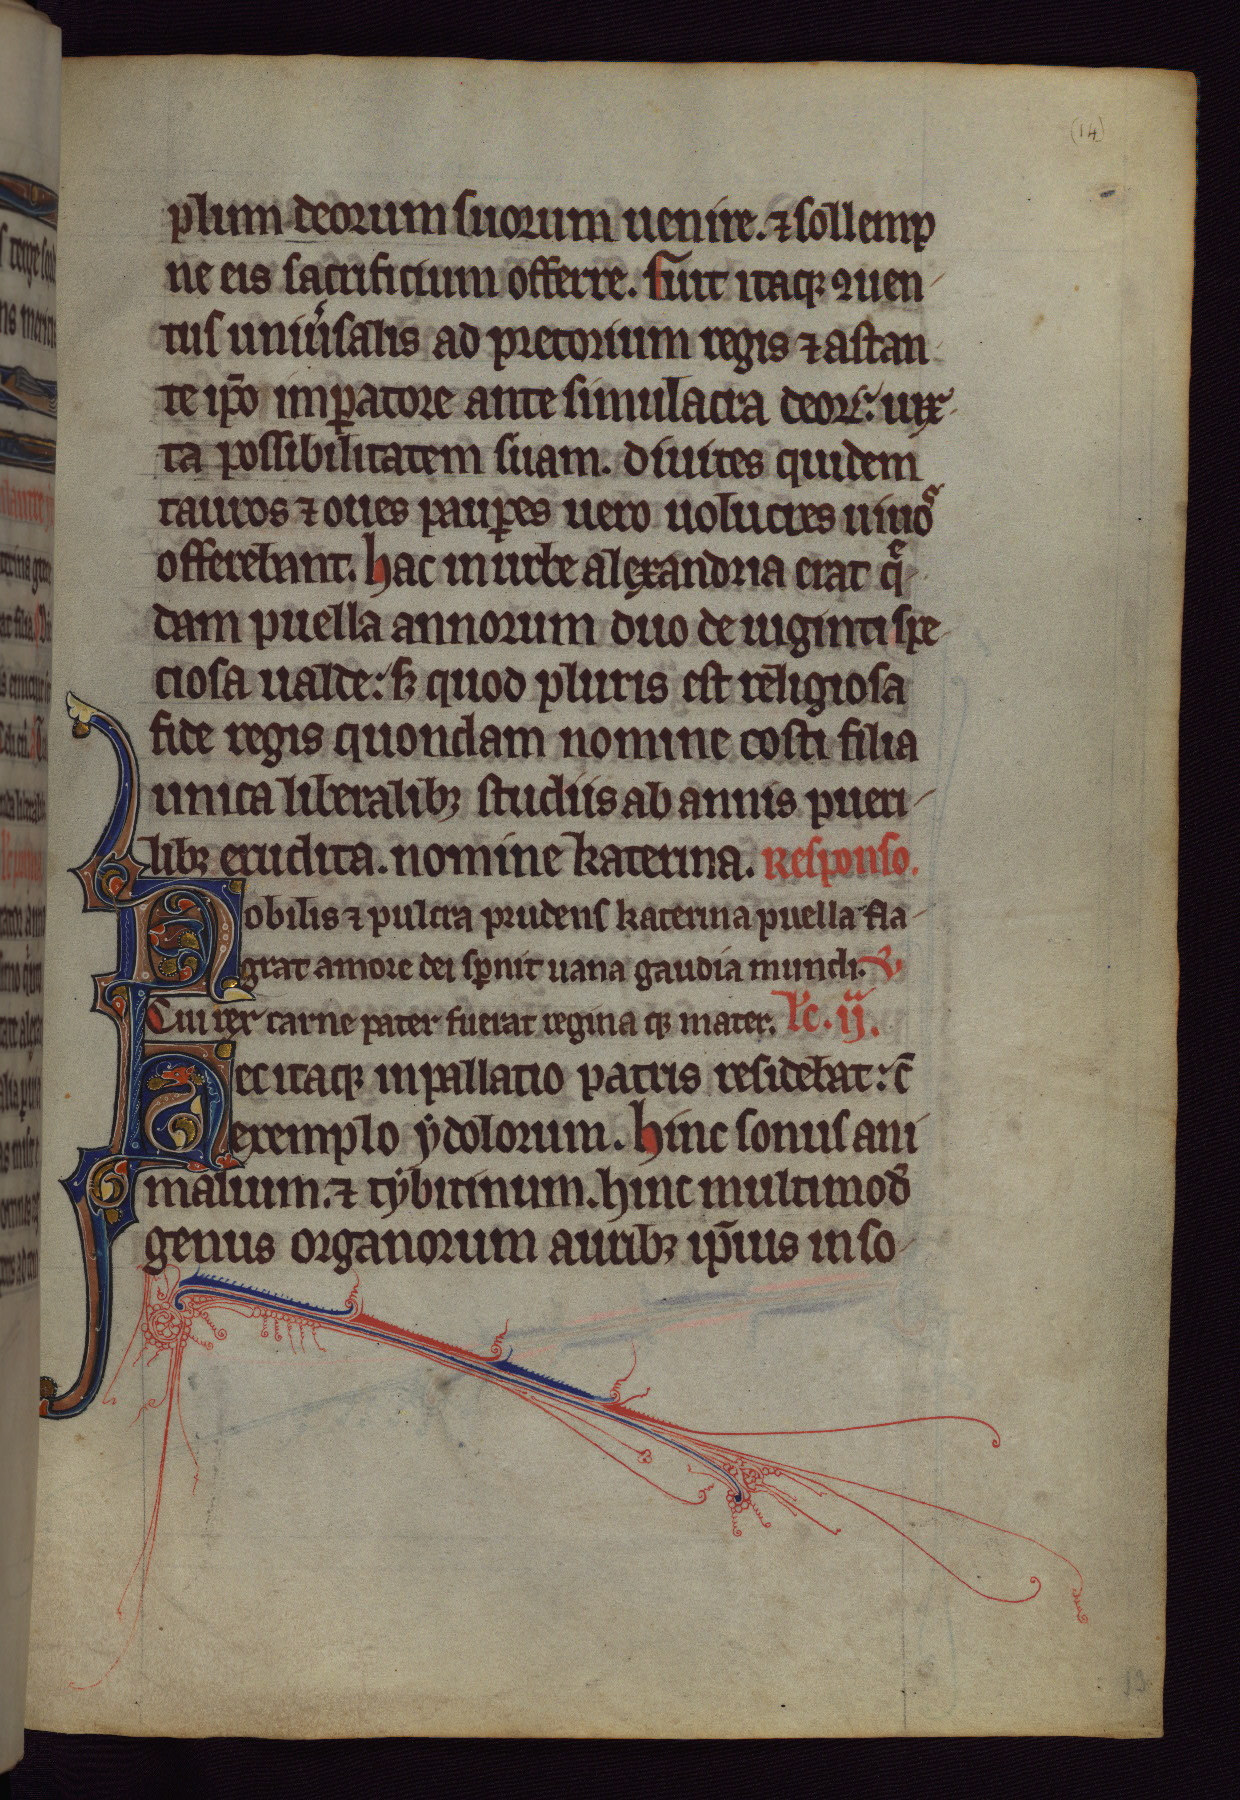 (14)
plum deorum suorum uenire. ⁊ sollemp
ne eis sacrificium offerre. fuit itaqꝫ ꝯuen
tus uniu̾salis ad pretorium regis ⁊ astan
te ip̄o imꝑatore ante simulacra deoꝝ: iux
ta possibilitatem suam. diuites quidem
tauros ⁊ oues pauꝑes uero uolucres uiuoˢ
offerebant. hac in urbe alexandria erat q̄
dam puella annorum duo de uiginti spe
ciosa ualde: sꝫ quod pluris est religiosa
fide regis quondam nomine costi filia
unica liberalibꝫ studiis ab annis pueri
libꝫ erudita. nomine katerina. Responso.
Nobilis ⁊ pulcra prudens katerina puella fla
grat amore dei sꝑnit uana gaudia mundi. ℣
Cui rex carne pater fuerat regina qꝫ mater. Lc̄. ij.
Hec itaqꝫ in pallatio patris residebat: c̄
exemplo ẏdolorum. hinc sonus ani
malium. ⁊ tẏbicinum. hinc multimod̾
genus organorum auribꝫ ip̄ius inso